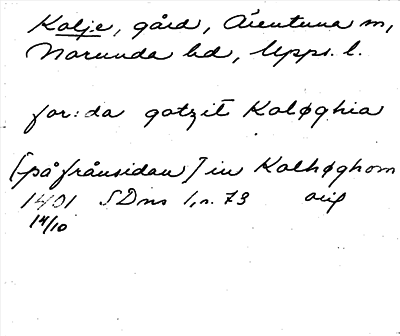 Kolje, gård, Ärentuna sn,
Norunda hd, Upps. l.
for: da gotzit Koløghia
[på frånsidan] in Kolhøghom
1401 SDns 1, n. 73 orig
14/10